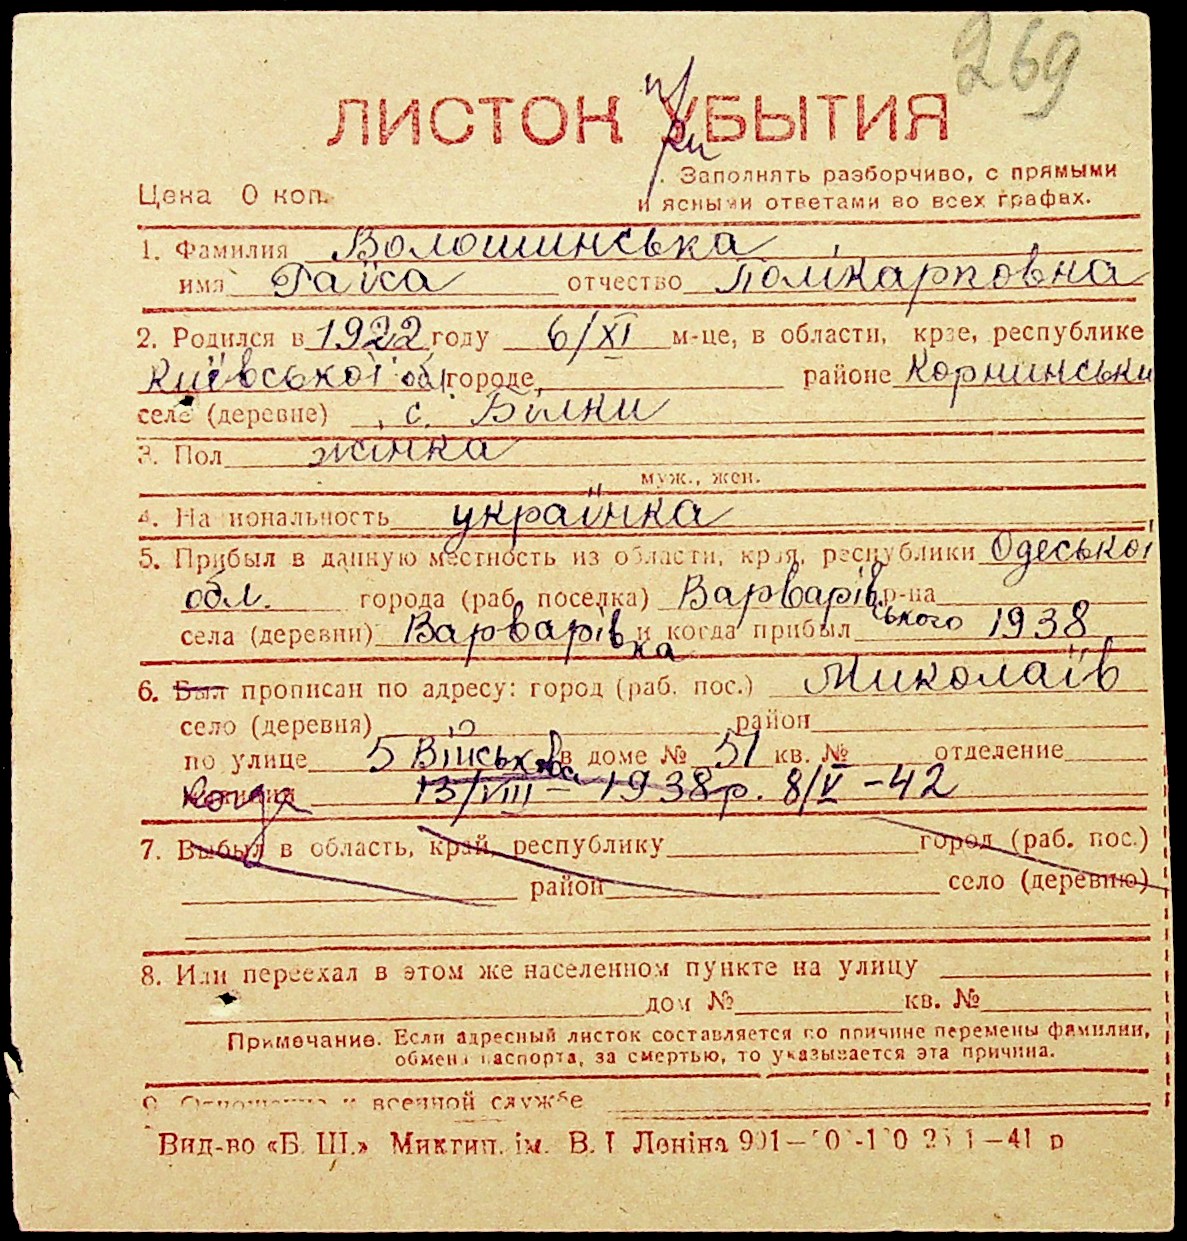 269
ЛИСТОК УБЫТИЯ
при
Заполнять разборчиво, с прямыми
Цена 0 коп.
и ясными ответами во всех графах.
1. Фамилия Волошинська
имя Раїса отчество Полікарповна
2. Родился в 1922 году 6/XI м-це, в области, крае, республике
Київської обл городе районе Корнинськи
селе (деревне) с. Білки
3. Пол жінка
муж., жен.
4. Национальность українка
5. Прибыл в данную местность из области, края, республики Одеської
обл. города (раб. поселка) Варварівського р-на
села (деревни) Варварівка и когда прибыл 1938
6. Был прописан по адресу: город (раб. пос.) Миколаїв
село (деревня) район
по улице 5 Військова в доме № 51 кв. № отделение
когда 13/VIII - 1938 р. 8/V - 42
7. Выбыл в область, край, республику город (раб. пос.)
район село (деревню)
8. Или переехал в этом же населенном пункте на улицу
дом № кв. №
Примечание. Если адресный листок составляется по причине перемены фамилии,
обмена паспорта, за смертью, то указывается эта причина.
9. Отношение к военной службе
Вид-во «Б. Ш.» Миктип. ім. В. І Леніна